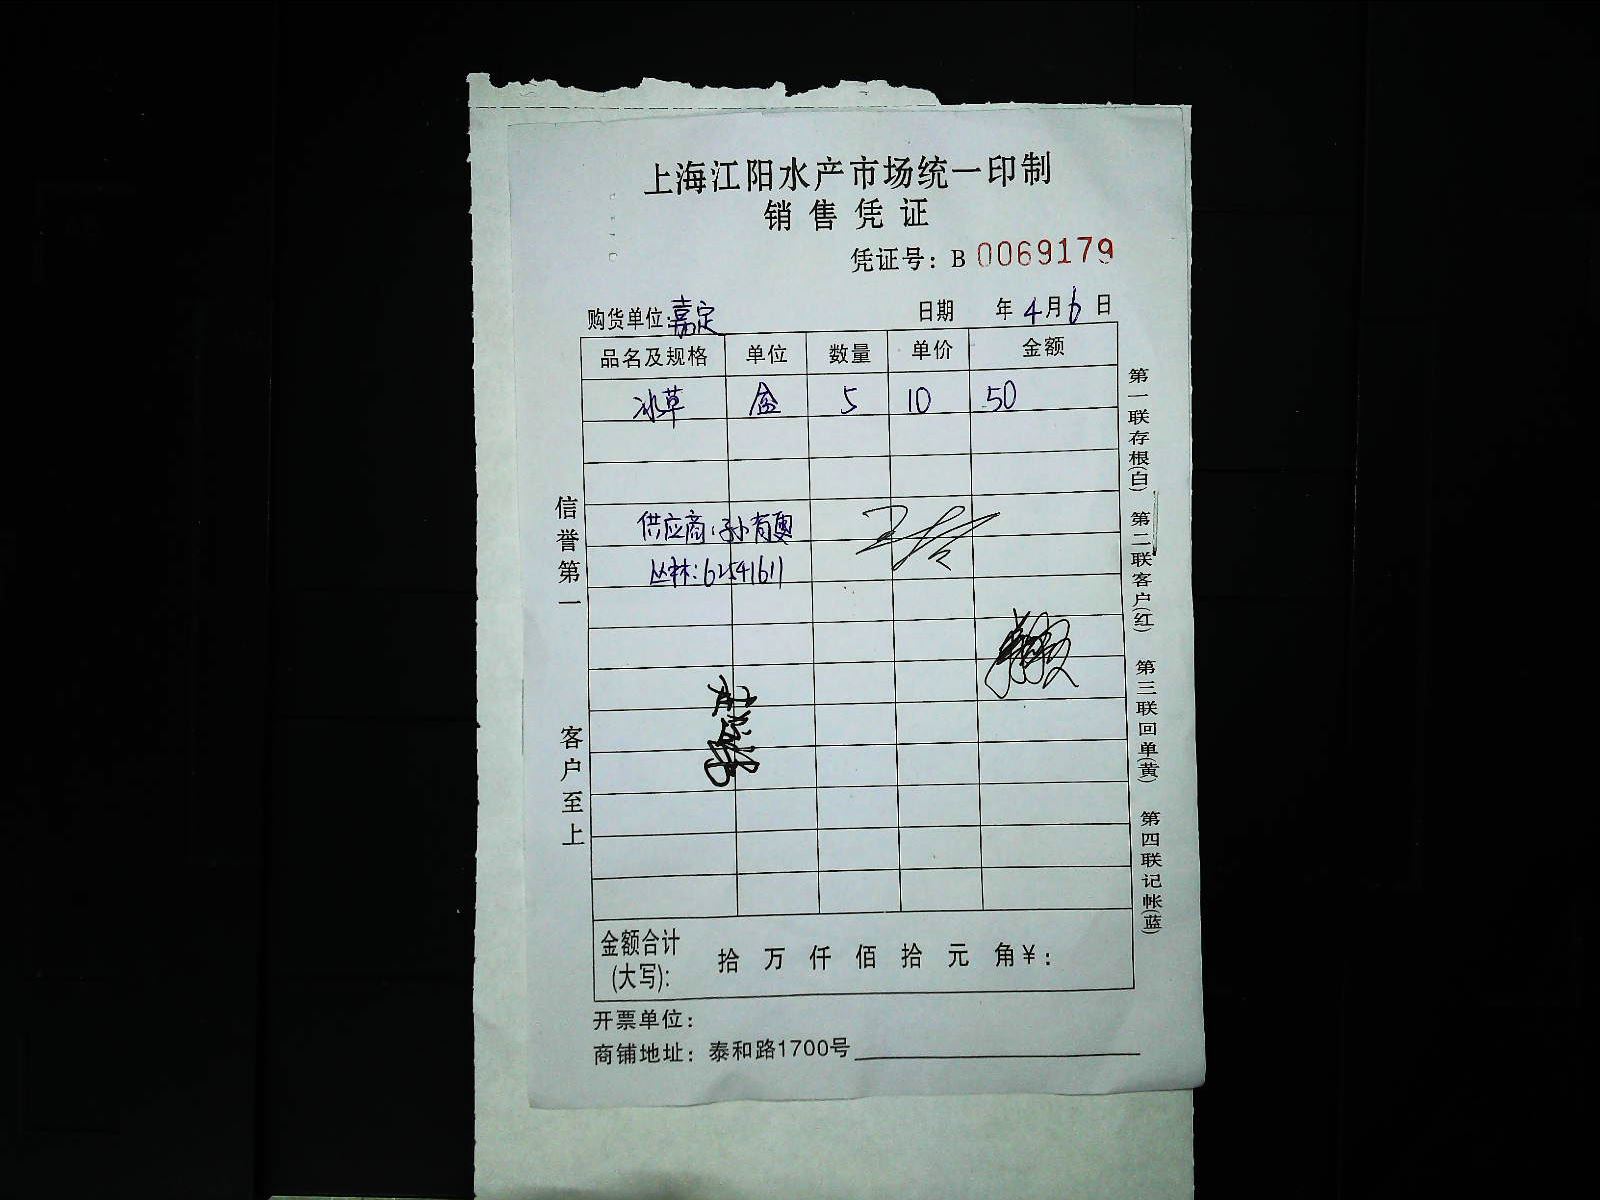 上海江阳水产市场统一印制
销售凭证
凭证号：B 0069179
购货单位：嘉定 日期 年4月6日
品名及规格 单位 数量 单价 金额
冰草 盒 5 10 50
供应商：孙有
丛林：62541611
金额合计(大写)： 拾 万 仟 佰 拾 元 角 ¥：
开票单位：
商铺地址：泰和路1700号
信誉第一 客户至上
第一联存根(白) 第二联客户(红) 第三联回单(黄) 第四联记帐(蓝)